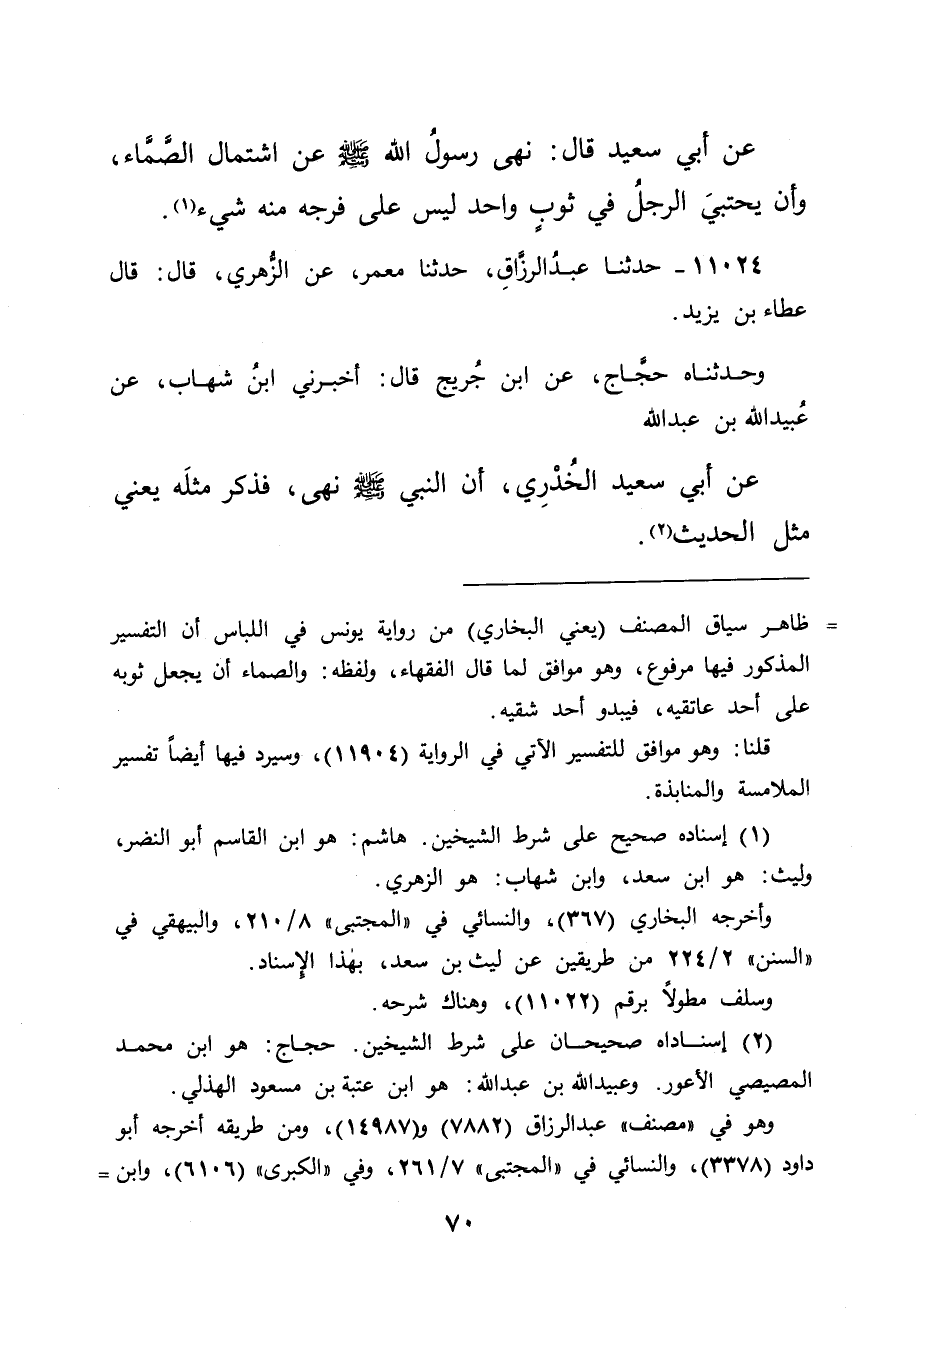 عن أبي سعيد قال: نهى رسولُ الله ﷺ عن اشتمال الصَّمَّاء،
وأن يحتبيَ الرجلُ في ثوبٍ واحد ليس على فرجه منه شيء(١).
١١٠٢٤ - حدثنا عبدُالرزَّاقِ، حدثنا معمر، عن الزُّهري، قال: قال
عطاء بن يزيد.
وحدثناه حجَّاج، عن ابن جُريج قال: أخبرني ابنُ شهاب، عن
عُبيدالله بن عبدالله
عن أبي سعيد الخُدْرِي، أن النبي ﷺ نهى، فذكر مثلَه يعني
مثل الحديث(٢).
= ظاهر سياق المصنف (يعني البخاري) من رواية يونس في اللباس أن التفسير
المذكور فيها مرفوع، وهو موافق لما قال الفقهاء، ولفظه: والصماء أن يجعل ثوبه
على أحد عاتقيه، فيبدو أحد شقيه.
قلنا: وهو موافق للتفسير الآتي في الرواية (١١٩٠٤)، وسيرد فيها أيضاً تفسير
الملامسة والمنابذة.
(١) إسناده صحيح على شرط الشيخين. هاشم: هو ابن القاسم أبو النضر،
وليث: هو ابن سعد، وابن شهاب: هو الزهري.
وأخرجه البخاري (٣٦٧)، والنسائي في «المجتبى» ٢١٠/٨، والبيهقي في
«السنن» ٢٢٤/٢ من طريقين عن ليث بن سعد، بهٰذا الإِسناد.
وسلف مطولاً برقم (١١٠٢٢)، وهناك شرحه.
(٢) إسناداه صحيحان على شرط الشيخين. حجاج: هو ابن محمد
المصيصي الأعور. وعبيدالله بن عبدالله: هو ابن عتبة بن مسعود الهذلي.
وهو في «مصنف» عبدالرزاق (٧٨٨٢) و(١٤٩٨٧)، ومن طريقه أخرجه أبو
داود (٣٣٧٨)، والنسائي في «المجتبى» ٢٦١/٧، وفي «الكبرى» (٦١٠٦)، وابن =
٧٠